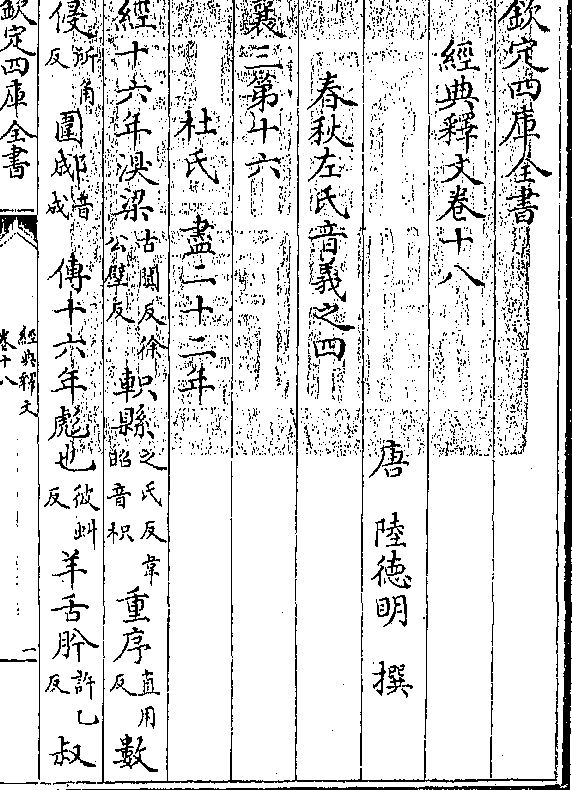 欽定四庫全書
經典釋文卷十八
唐 陸德明 撰
春秋左氏音義之四
襄三第十六
杜氏 盡二十二年
經十六年湨梁古闃反徐公壁反 軹縣之氏反韋昭音枳 重序直用反 數
侵所角反 圍郕音成 傳十六年彪也彼虯反 羊舌肸許乙反 叔
欽定四庫全書
經典釋文
卷十八
一